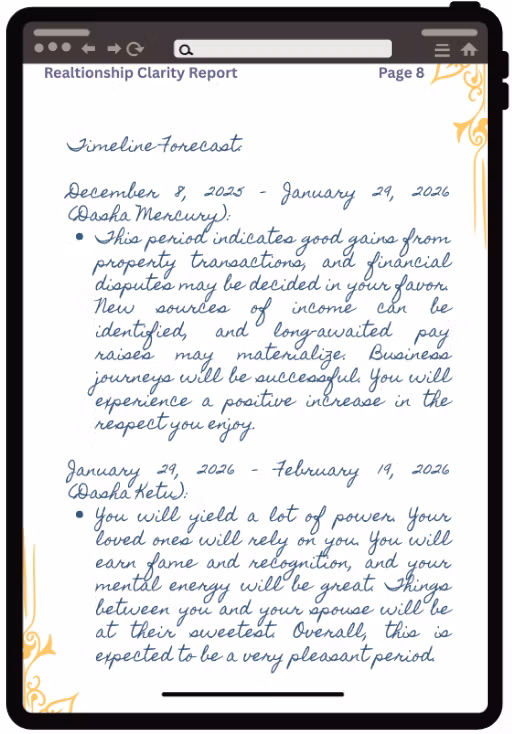 Realtionship Clarity Report Page 8
Timeline Forecast:
December 8, 2025 - January 29, 2026
(Dasha Mercury):
• This period indicates good gains from
property transactions, and financial
disputes may be decided in your favor.
New sources of income can be
identified, and long-awaited pay
raises may materialize. Business
journeys will be successful. You will
experience a positive increase in the
respect you enjoy.
January 29, 2026 - February 19, 2026
(Dasha Ketu):
• You will yield a lot of power. Your
loved ones will rely on you. You will
earn fame and recognition, and your
mental energy will be great. Things
between you and your spouse will be
at their sweetest. Overall, this is
expected to be a very pleasant period.